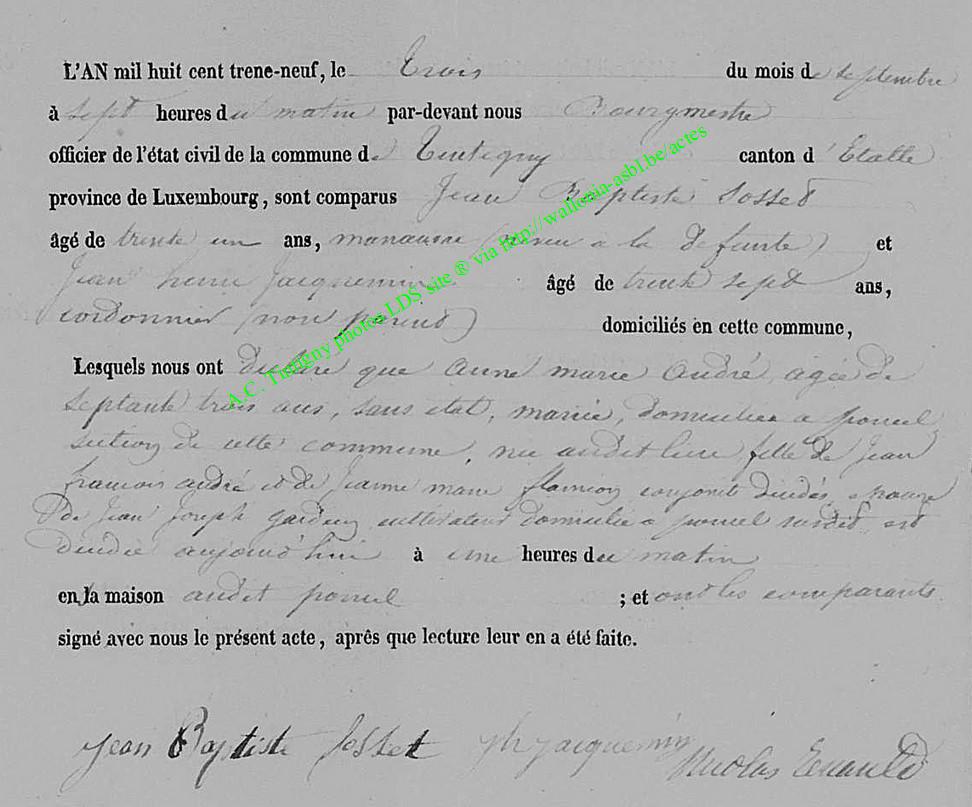 L'AN mil huit cent trene-neuf, le trois du mois de septembre
à sept heures du matin par-devant nous Bourgmestre
officier de l'état civil de la commune de Tintigny canton d'Etalle
province de Luxembourg, sont comparus Jean Baptiste Josset
âgé de trente un ans, manœuvre (neveu a la defunte) et
Jean henri Jacquemin âgé de trente sept ans,
cordonnier (non parent) domiciliés en cette commune,
Lesquels nous ont déclaré que anne marie andré, agée de
septante trois ans, sans état, mariée, domiciliée a poncel
section de cette commune, née audit lieu fille de Jean
francois andré et de Jeanne marie flamion conjoints décédés, epouse
de Jean Joseph cultivateur domicilié a poncel susdit est
décédée aujourd'hui à une heures du matin
en la maison audit poncel ; et ont les comparants
signé avec nous le présent acte, après que lecture leur en a été faite.
Jean Baptiste Josset jh jacquemin Nicolas
A.C. Tintigny photos LDS site ® via http://wallonia-asbl.be/actes